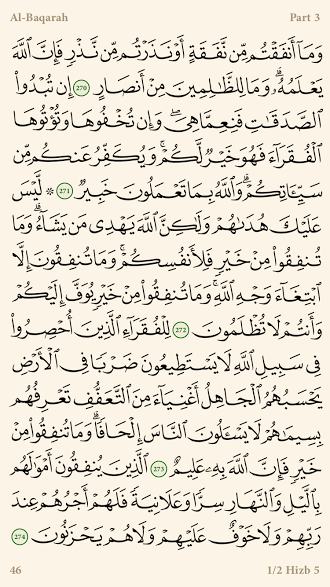 Al-Baqarah Part 3
وَمَآ أَنفَقْتُم مِّن نَّفَقَةٍ أَوْ نَذَرْتُم مِّن نَّذْرٍ فَإِنَّ ٱللَّهَ
يَعْلَمُهُۥ ۗ وَمَا لِلظَّٰلِمِينَ مِنْ أَنصَارٍ 270 إِن تُبْدُوا۟
ٱلصَّدَقَٰتِ فَنِعِمَّا هِىَ ۖ وَإِن تُخْفُوهَا وَتُؤْتُوهَا
ٱلْفُقَرَآءَ فَهُوَ خَيْرٌ لَّكُمْ ۚ وَيُكَفِّرُ عَنكُم مِّن
سَيِّـَٔاتِكُمْ ۗ وَٱللَّهُ بِمَا تَعْمَلُونَ خَبِيرٌ 271 ۞ لَّيْسَ
عَلَيْكَ هُدَىٰهُمْ وَلَٰكِنَّ ٱللَّهَ يَهْدِى مَن يَشَآءُ ۗ وَمَا
تُنفِقُوا۟ مِنْ خَيْرٍ فَلِأَنفُسِكُمْ ۚ وَمَا تُنفِقُونَ إِلَّا
ٱبْتِغَآءَ وَجْهِ ٱللَّهِ ۚ وَمَا تُنفِقُوا۟ مِنْ خَيْرٍ يُوَفَّ إِلَيْكُمْ
وَأَنتُمْ لَا تُظْلَمُونَ 272 لِلْفُقَرَآءِ ٱلَّذِينَ أُحْصِرُوا۟
فِى سَبِيلِ ٱللَّهِ لَا يَسْتَطِيعُونَ ضَرْبًا فِى ٱلْأَرْضِ
يَحْسَبُهُمُ ٱلْجَاهِلُ أَغْنِيَآءَ مِنَ ٱلتَّعَفُّفِ تَعْرِفُهُم
بِسِيمَٰهُمْ لَا يَسْـَٔلُونَ ٱلنَّاسَ إِلْحَافًا ۗ وَمَا تُنفِقُوا۟ مِنْ
خَيْرٍ فَإِنَّ ٱللَّهَ بِهِۦ عَلِيمٌ 273 ٱلَّذِينَ يُنفِقُونَ أَمْوَٰلَهُم
بِٱلَّيْلِ وَٱلنَّهَارِ سِرًّا وَعَلَانِيَةً فَلَهُمْ أَجْرُهُمْ عِندَ
رَبِّهِمْ وَلَا خَوْفٌ عَلَيْهِمْ وَلَا هُمْ يَحْزَنُونَ 274
46 1/2 Hizb 5